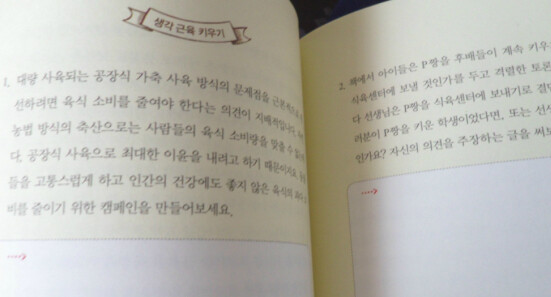 생각 근육 키우기
1. 대량 사육되는 공장식 가축 사육 방식의 문제점을
선하려면 육식 소비를 줄여야 한다는 의견이
농법 방식의 축산으로는 사람들의 육식 소비량을 맞출 수
다. 공장식 사육으로 최대한 이윤을 내려고 하기 때문이지요.
들을 고통스럽게 하고 인간의 건강에도 좋지 않은 육식의
비를 줄이기 위한 캠페인을 만들어보세요.
2. 책에서 아이들은 P짱을 후배들이 계속 키우
식육센터에 보낼 것인가를 두고 격렬한 토론
다 선생님은 P짱을 식육센터에 보내기로 결
러분이 P짱을 키운 학생이었다면, 또는 선
인가요? 자신의 의견을 주장하는 글을 써보